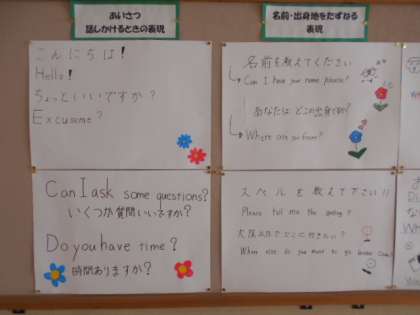 あいさつ
話しかけるときの表現
こんにちは!
Hello!
ちょっといいですか?
Excuseme?
Can I ask some questions?
いくつか質問いいですか?
Do you have time?
時間ありますか?
名前・出身地をたずねる
表現
名前を教えてください
Can I have your name please?
あなたはどこの出身ですか?
Where are you from?
スペルを教えて下さい!!
Please tell me the
大阪 どこに行きたい?
Where do you want to go